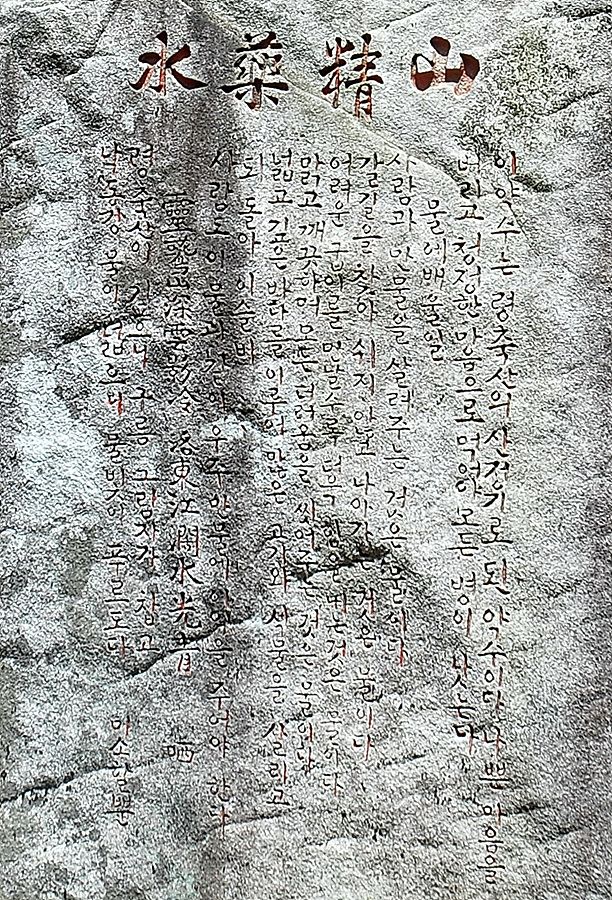 山精藥水
이 약수는 령축산의 산정기로 된 약수이다 나쁜 마음을
버리고 청정한 마음으로 먹어야 모든 병이 낫는다
물에 배울 일
사람과 만물을 살려주는 것은 물이다
갈길을 찾아 쉬지 않고 나아가는 것은 물이다
어려운 굽이를 만날수록 더욱 힘을 내는것은 물이다
맑고 깨끗하며 모든 더러움을 씻어주는 것은 물이다
넓고 깊은 바다를 이루어 많은 고기와 식물을 살리고
되돌아 이슬비
사람도 이 물과 같이 우주만물에 이익을 주어야 한다
靈鷲山深雲影冷 洛東江濶水光靑 哂
령축산이 깊으니 구름 그림자가 차고
낙동강 물이 넓으니 물빛이 푸르도다 미소할뿐